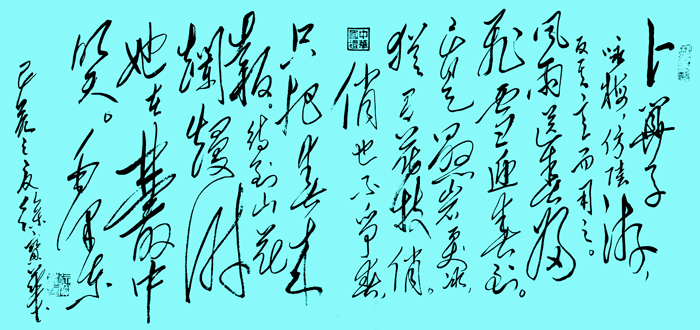 卜算子
咏梅，仿陆游，
反其意而用之。
风雨送春归
飞雪迎春到。
已是悬岩百丈冰，
犹有花枝俏。
俏也不争春，
只把春来
報。待到山花
爛熳时
她在叢中
笑。毛泽东
之夏徐
中華